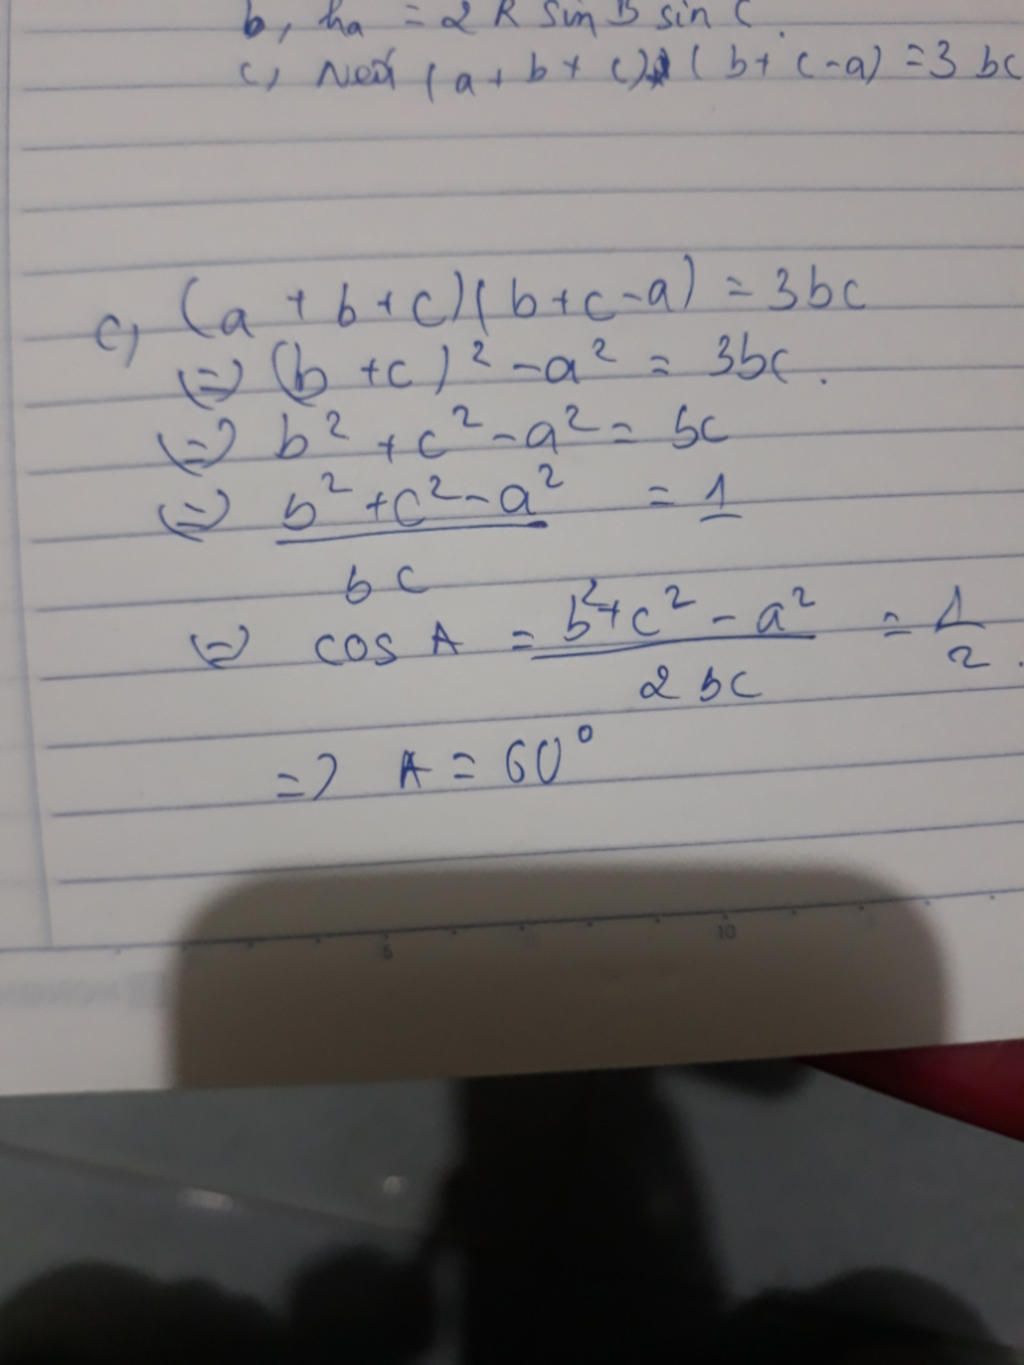 b, ha = 2 R sin B sin C.
c, Nếu (a + b + c) (b + c - a) = 3 bc
c, (a + b + c)(b + c - a) = 3bc
(=) (b + c)² - a² = 3bc.
(=) b² + c² - a² = bc
(=) b² + c² - a² / bc = 1
(=) cos A = b² + c² - a² / 2 bc = 1/2.
=) A = 60°
5 10